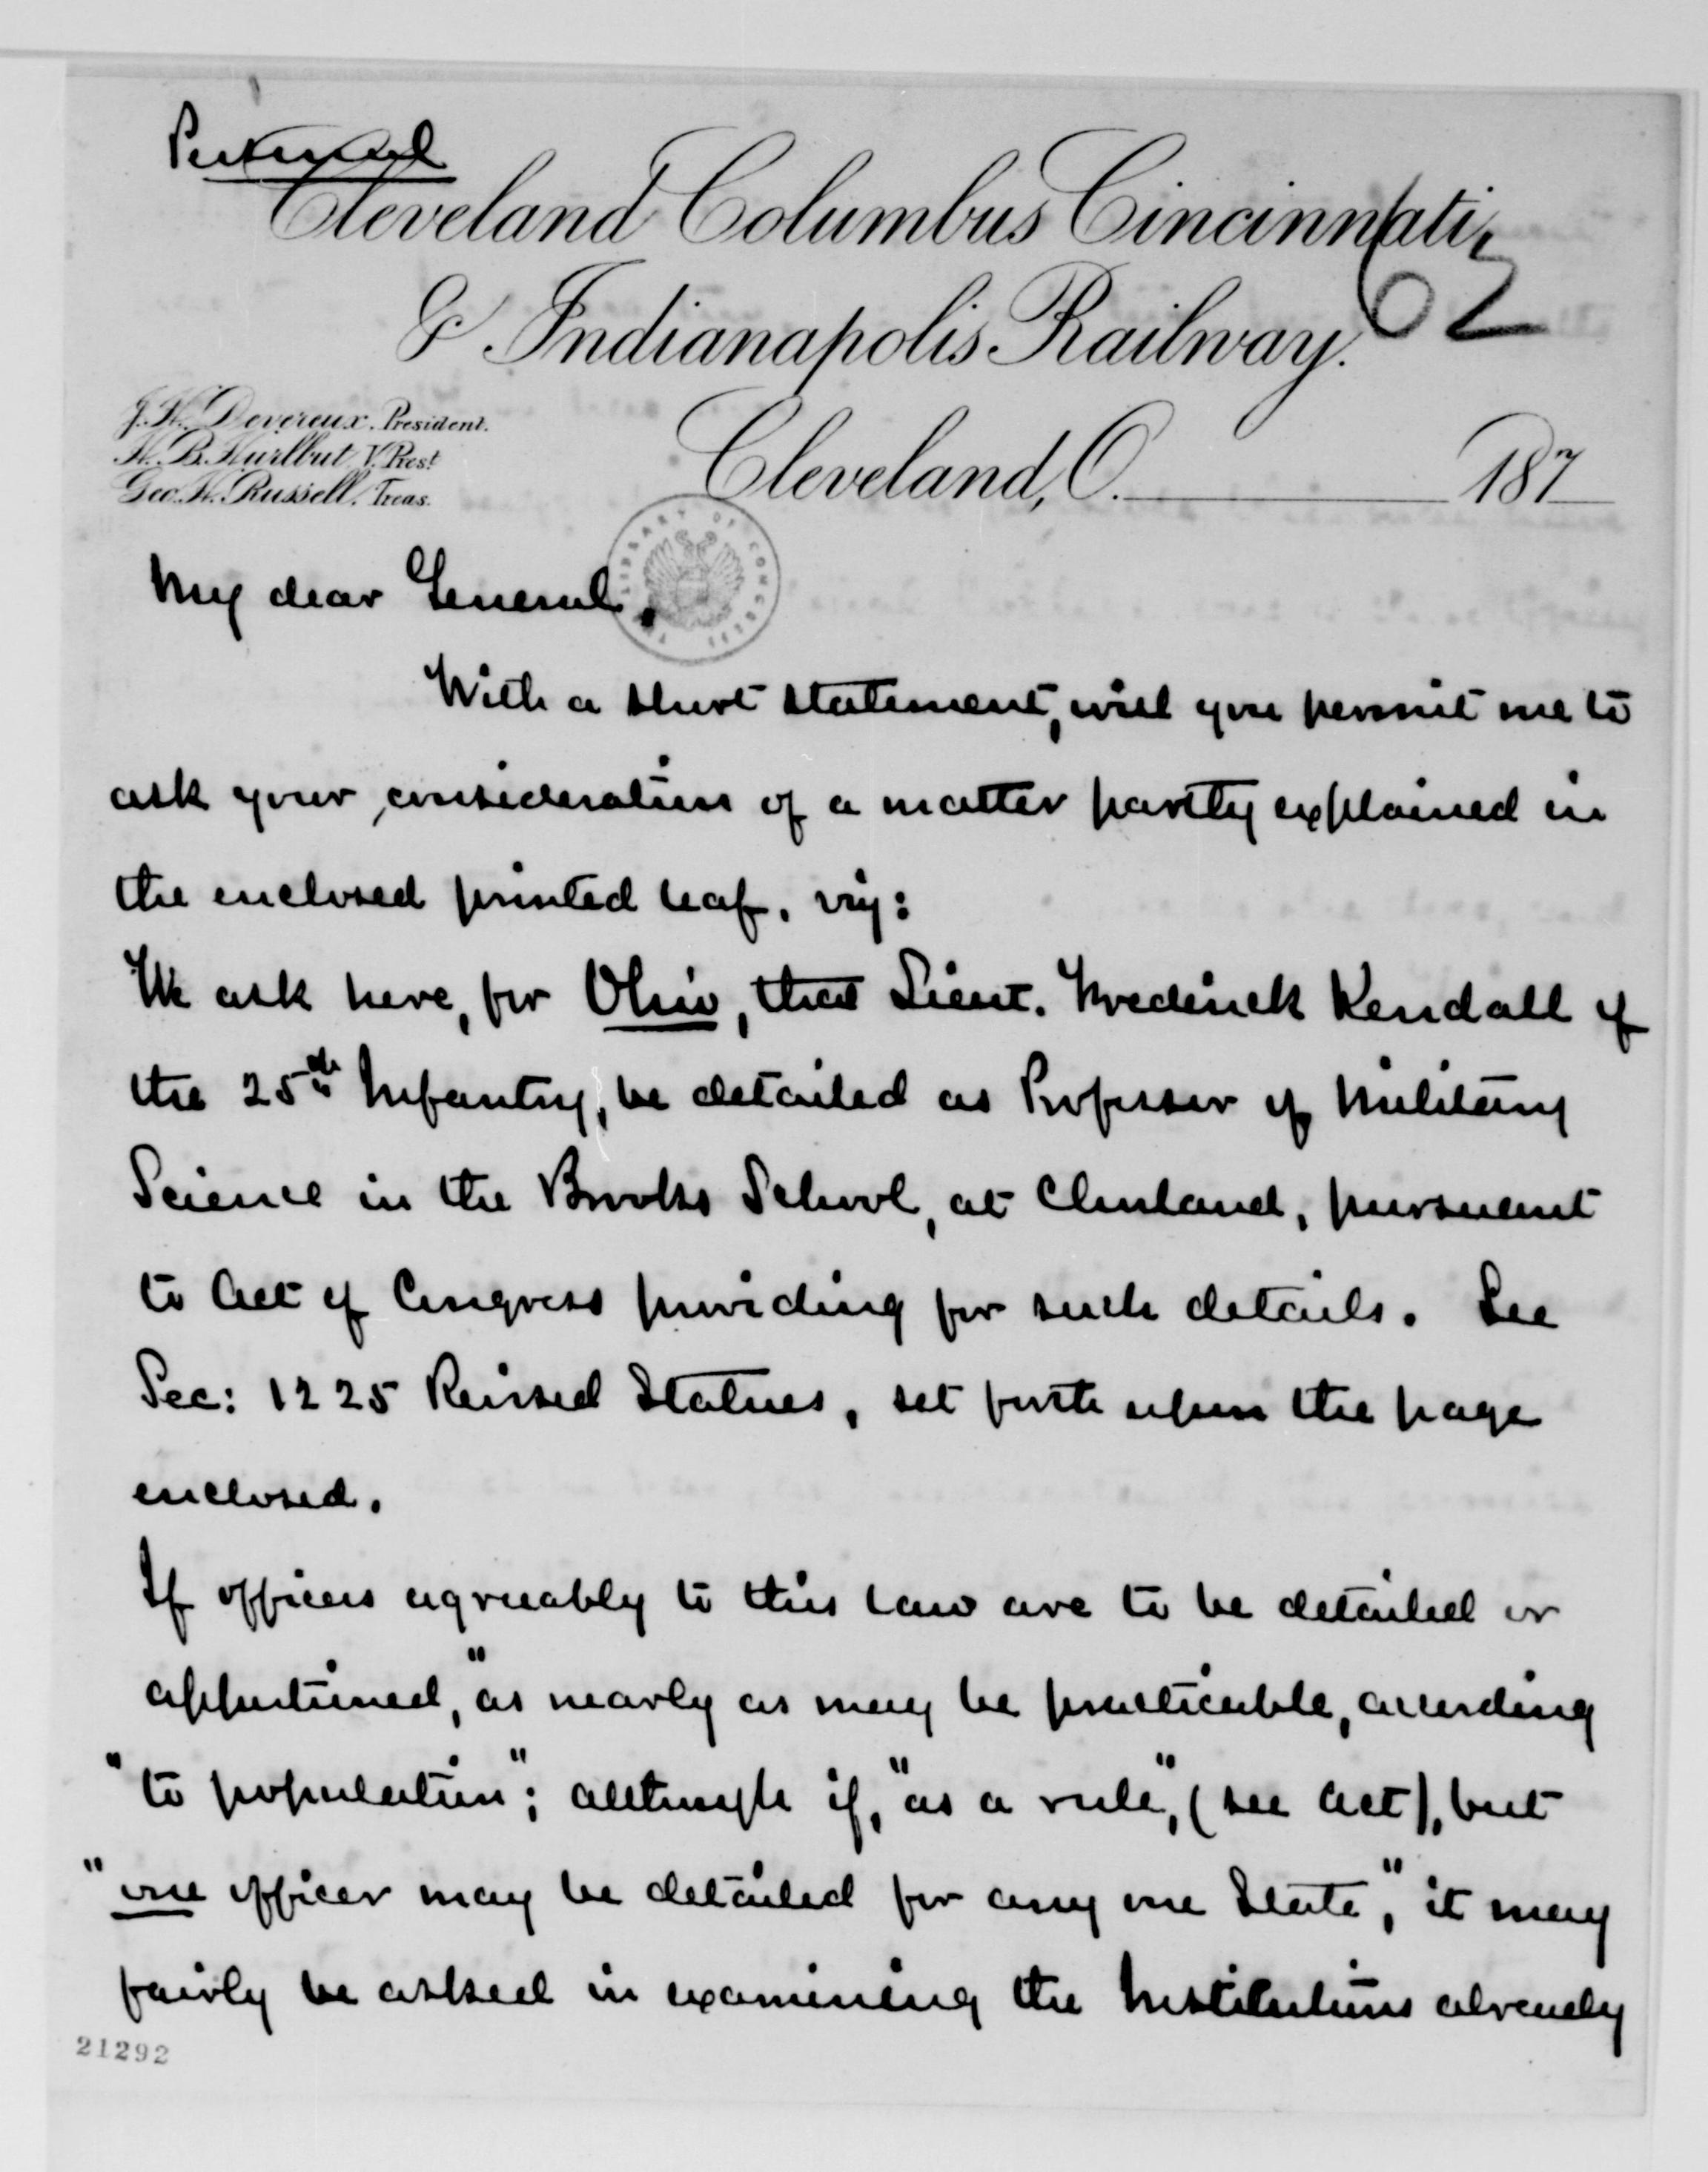 Personal
Cleveland Columbus Cincinnati,
& Indianapolis Railway.
62
J. H. Devereux. President.
H. B. Hurlbut V. Prest
Geo. H. Russell. Treas.
Cleveland, O. 187
THE LIBRARY OF CONGRESS
My dear General,
With a short statement, will you permit me to
ask your consideration of a matter partly explained in
the enclosed printed leaf, viz:
We ask here, for Ohio, that Lieut. Frederick Kendall of
the 25th Infantry, be detailed as Professor of Military
Science in the Brooks School, at Cleveland, pursuant
to Act of Congress providing for such details. See
Sec: 1225 Revised Statues, set forth upon the page
enclosed.
If officers agreeably to this law are to be detailed or
apportioned, "as nearly as may be practicable, according
"to population"; although if, "as a rule", (see Act), but
"one officer may be detailed for any one State", it may
fairly be asked in examining the Institutions already
21292